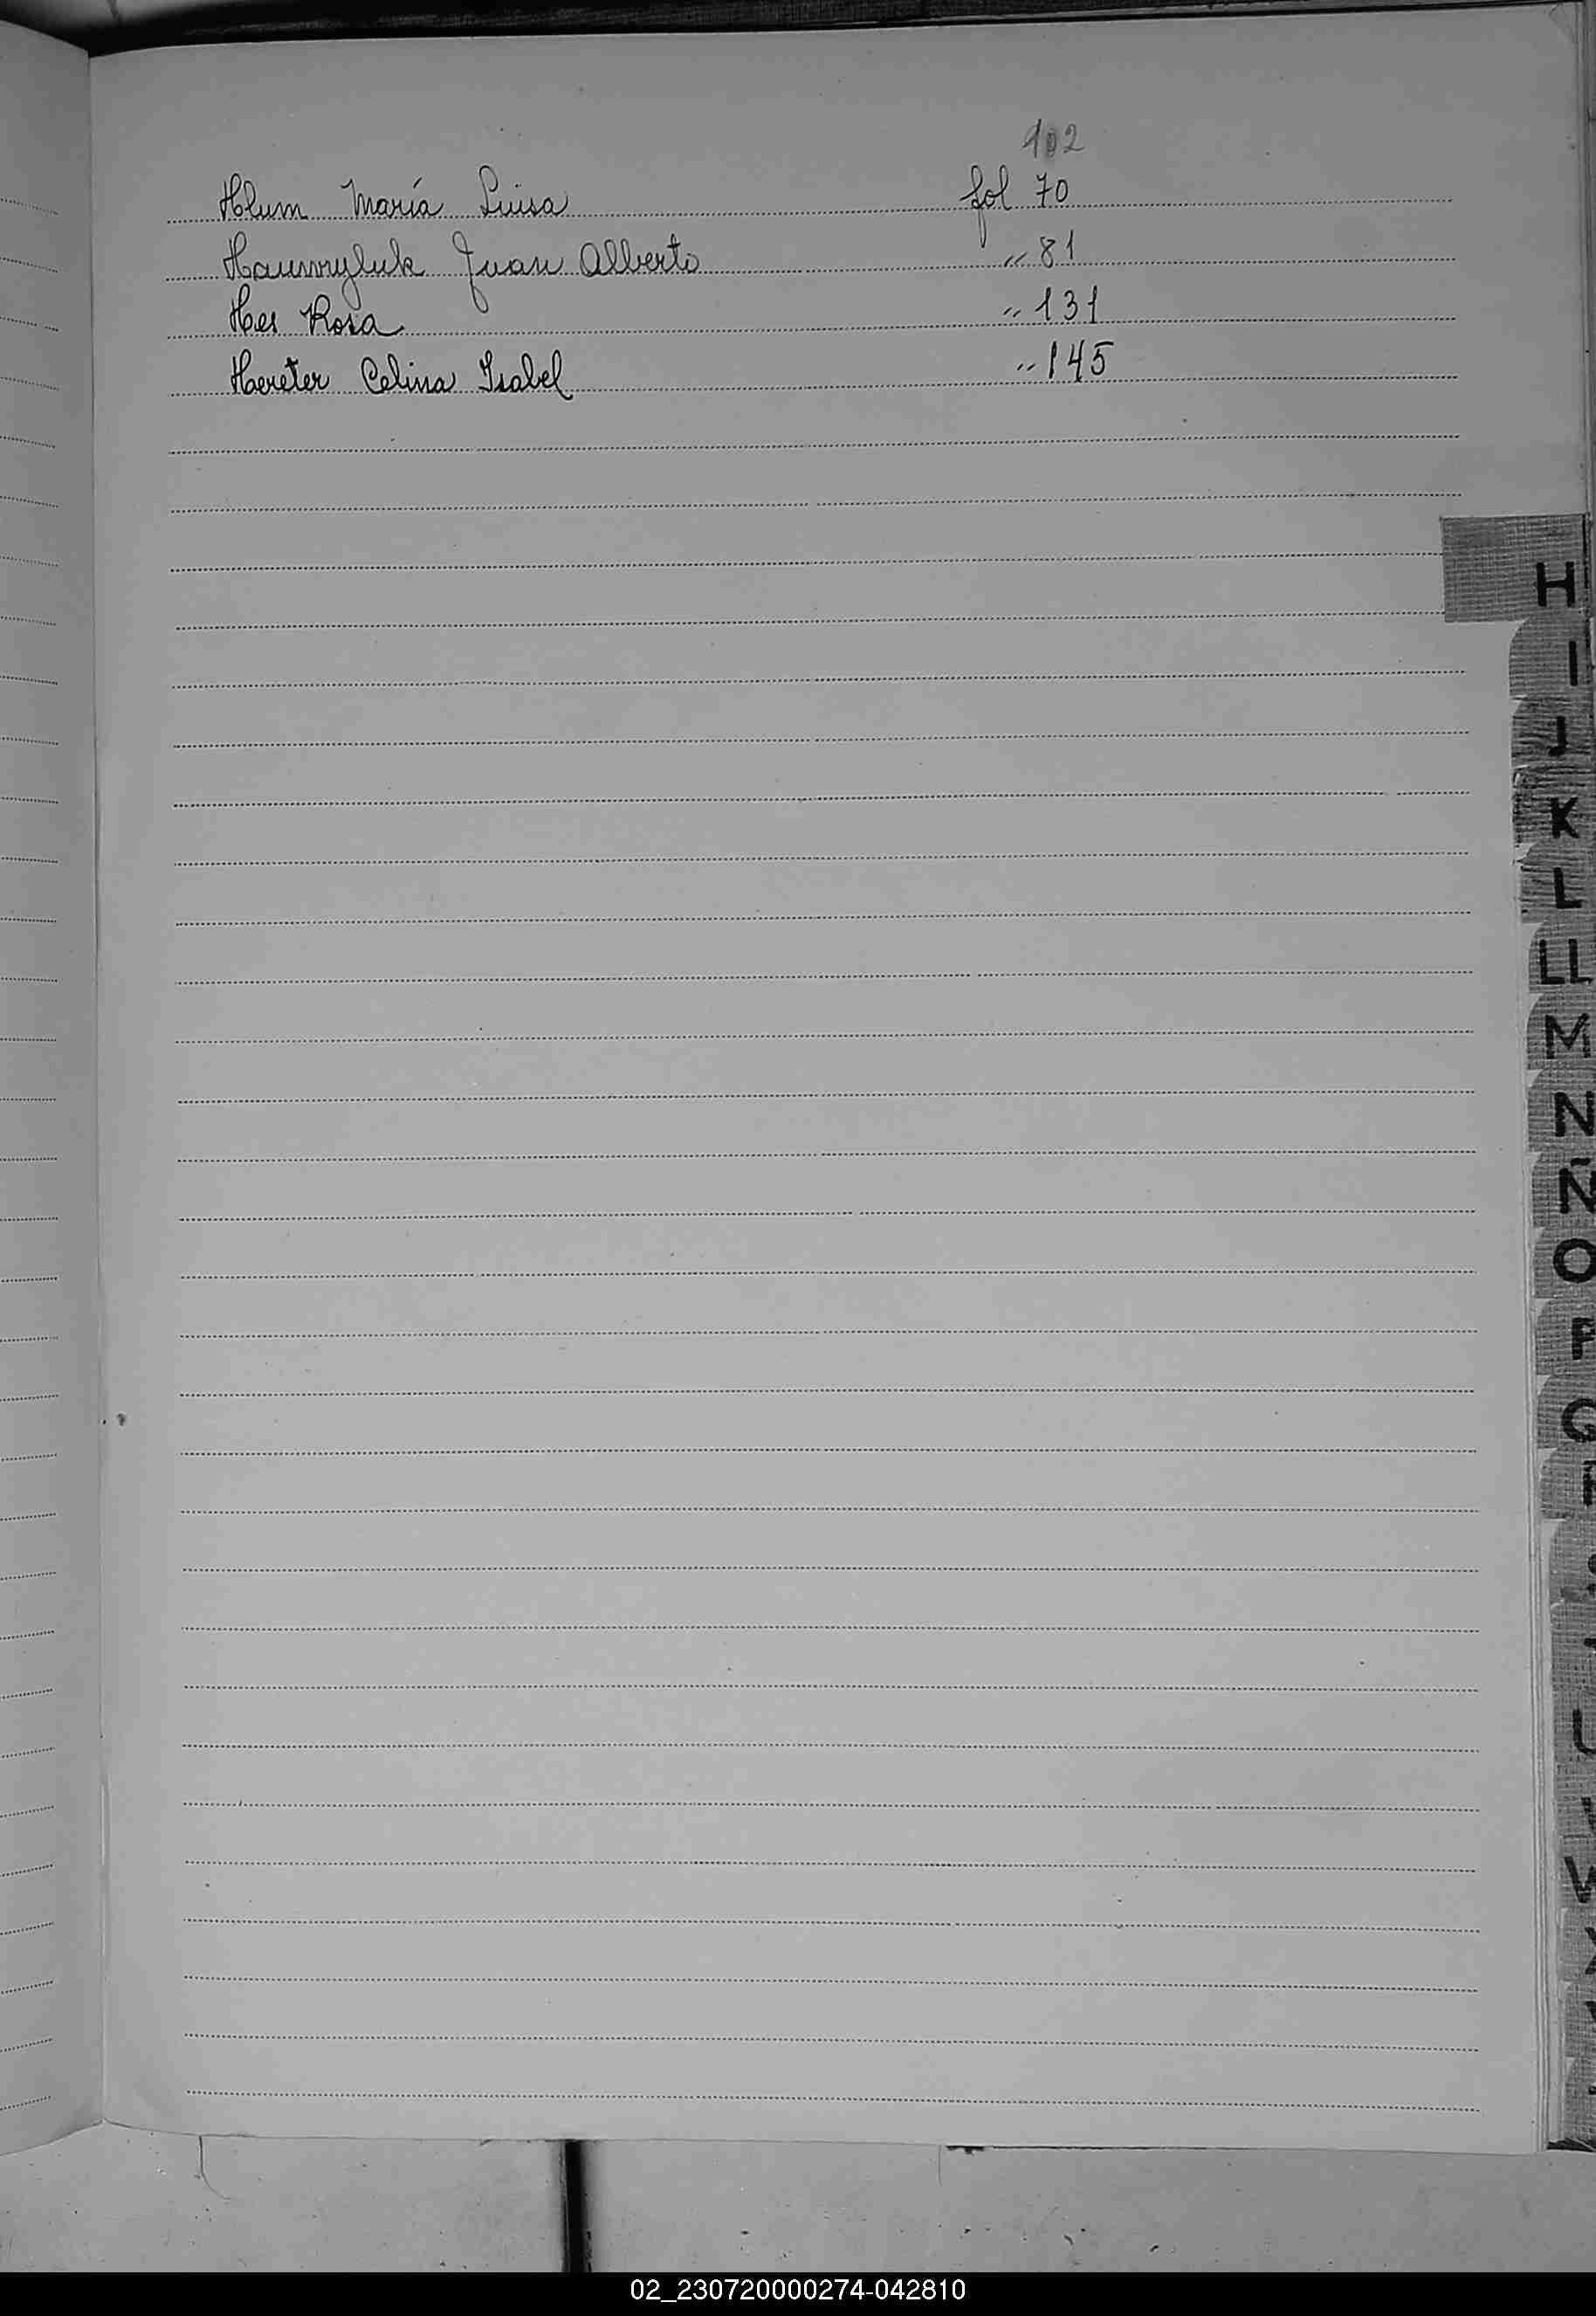 102
Hlum María Luisa fol 70
Hauwryluk Juan Alberto " 81
Hes Rosa " 131
Hereter Celina Isabel " 145
H
I
J
K
L
LL
M
N
Ñ
O
P
Q
R
S
T
U
V
W
X
02_230720000274-042810